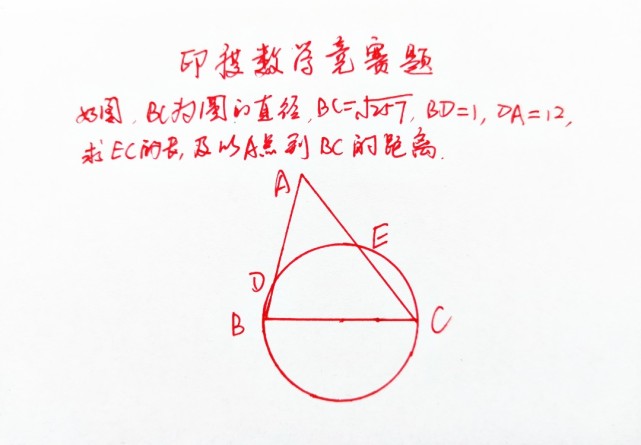 印度数学竞赛题
如图,BC为圆的直径,BC=√257,BD=1,DA=12,
求EC的长,及以A点到BC的距离.
A
E
D
B
C